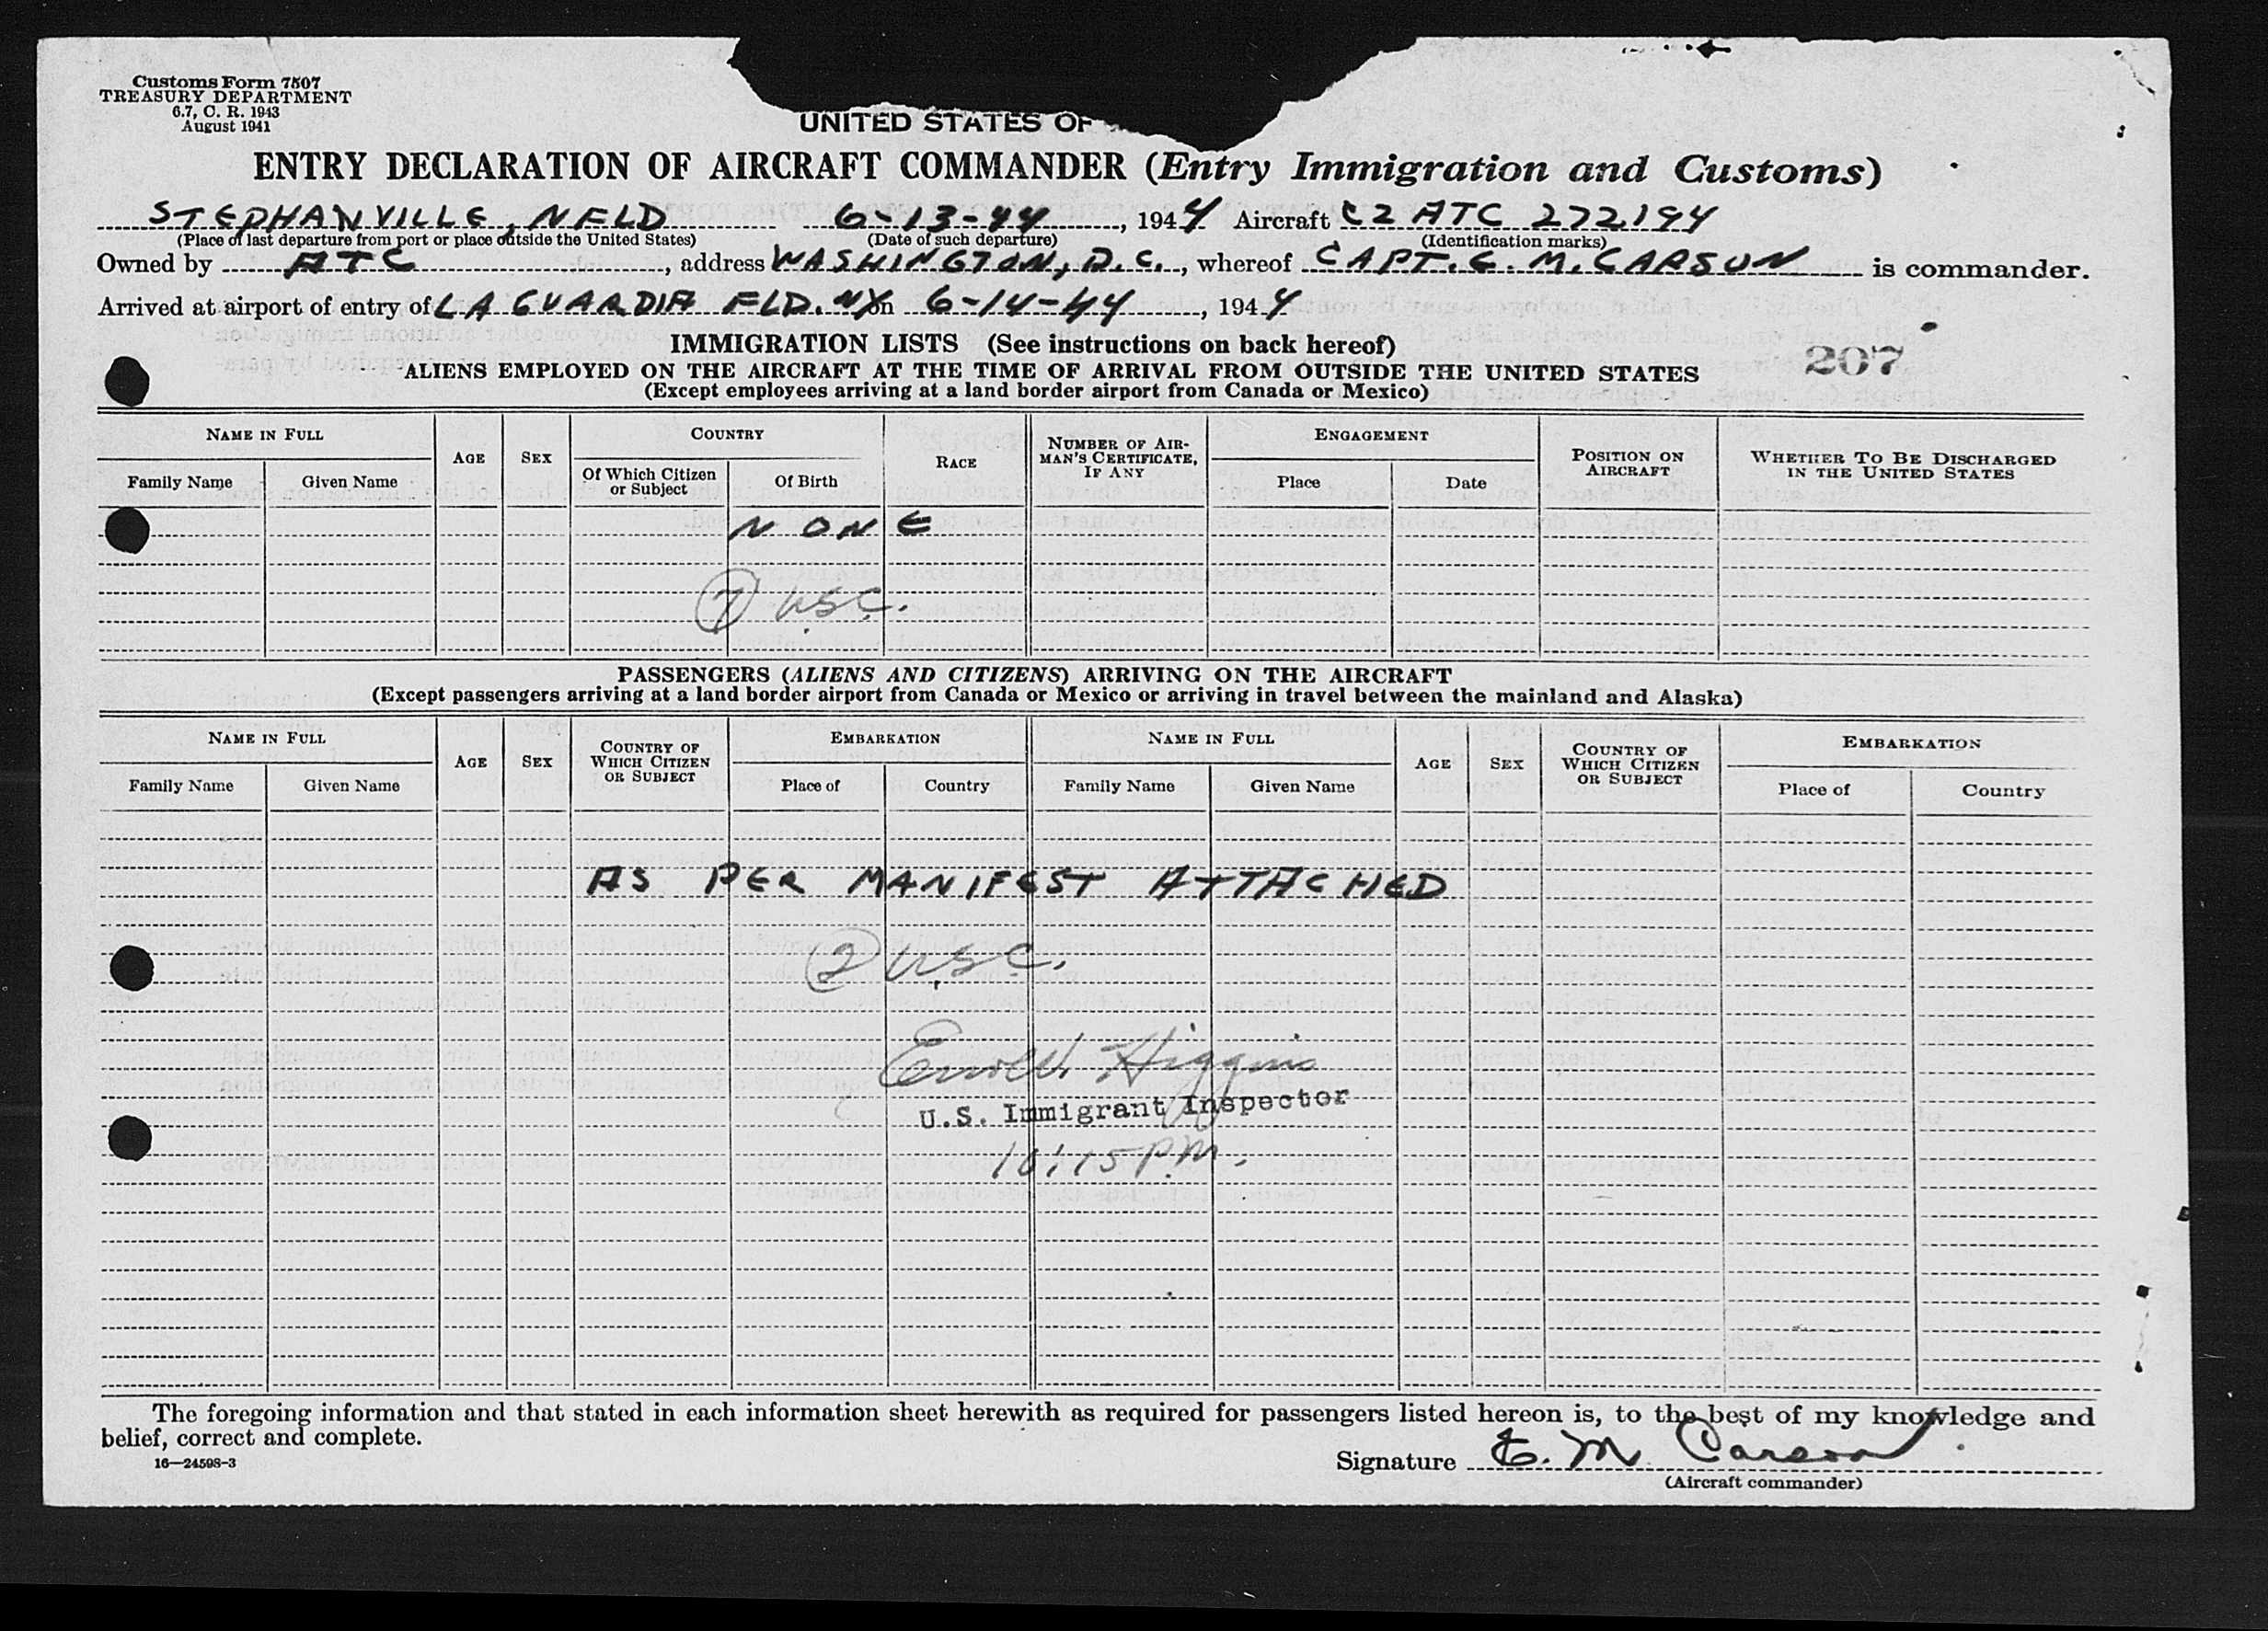 Customs Form 7507
TREASURY DEPARTMENT
6.7, C. R. 1943
August 1941
UNITED STATES OF
ENTRY DECLARATION OF AIRCRAFT COMMANDER (Entry Immigration and Customs)
STEPHANVILLE, NFLD 6-13-44, 1944 Aircraft C2 ATC 272194
(Place of last departure from port or place outside the United States) (Date of such departure) (Identification marks)
Owned by ATC, address WASHINGTON, D.C., whereof CAPT. E. M. CARSON is commander.
Arrived at airport of entry of LA GUARDIA FLD. NY on 6-14-44, 1944
IMMIGRATION LISTS (See instructions on back hereof)
207
ALIENS EMPLOYED ON THE AIRCRAFT AT THE TIME OF ARRIVAL FROM OUTSIDE THE UNITED STATES
(Except employees arriving at a land border airport from Canada or Mexico)
NAME IN FULL AGE SEX COUNTRY RACE NUMBER OF AIRMAN'S CERTIFICATE, IF ANY ENGAGEMENT POSITION ON AIRCRAFT WHETHER TO BE DISCHARGED IN THE UNITED STATES
Family Name Given Name Of Which Citizen or Subject Of Birth Place Date
NONE
7 U.S.C.
PASSENGERS (ALIENS AND CITIZENS) ARRIVING ON THE AIRCRAFT
(Except passengers arriving at a land border airport from Canada or Mexico or arriving in travel between the mainland and Alaska)
NAME IN FULL AGE SEX COUNTRY OF WHICH CITIZEN OR SUBJECT EMBARKATION NAME IN FULL AGE SEX COUNTRY OF WHICH CITIZEN OR SUBJECT EMBARKATION
Family Name Given Name Place of Country Family Name Given Name Place of Country
AS PER MANIFEST ATTACHED
2 U.S.C.
Higgins
U.S. Immigrant Inspector
10:15 P.M.
The foregoing information and that stated in each information sheet herewith as required for passengers listed hereon is, to the best of my knowledge and
belief, correct and complete.
16—24598-3
Signature E. M. Carson
(Aircraft commander)